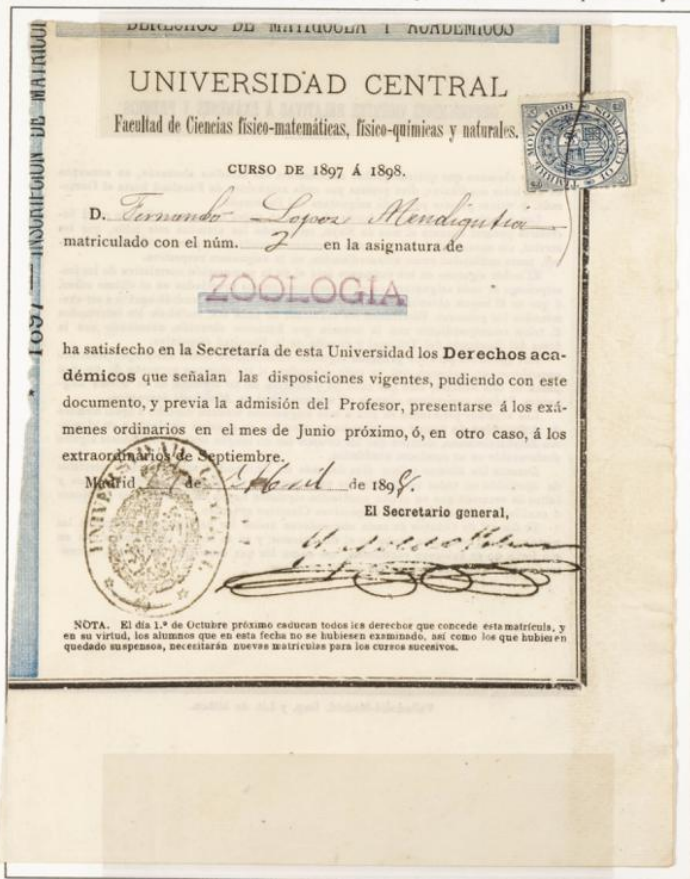 DERECHOS DE MATRÍCULA Y ACADÉMICOS
1897 — INSCRIPCIÓN DE MATRÍCUL
UNIVERSIDAD CENTRAL
Facultad de Ciencias físico-matemáticas, físico-químicas y naturales.
CURSO DE 1897 Á 1898.
D. Fernando Lopez Mendigutia
matriculado con el núm. 2 en la asignatura de
ZOOLOGIA
ha satisfecho en la Secretaría de esta Universidad los Derechos aca-
démicos que señalan las disposiciones vigentes, pudiendo con este
documento, y previa la admisión del Profesor, presentarse á los exá-
menes ordinarios en el mes de Junio próximo, ó, en otro caso, á los
extraordinarios de Septiembre.
Madrid de Abril de 1898.
El Secretario general,
UNIVERSIDAD
MOVIL 1898
TIMBRE
10 CE
NOTA. El día 1.º de Octubre próximo caducan todos los derechos que concede esta matrícula, y
en su virtud, los alumnos que en esta fecha no se hubiesen examinado, así como los que hubiesen
quedado suspensos, necesitarán nuevas matrículas para los cursos sucesivos.